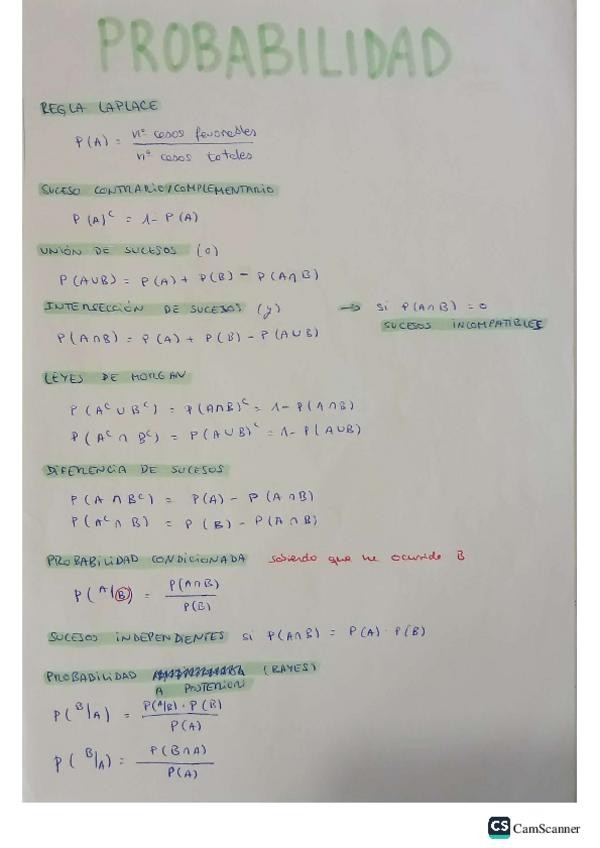 PROBABILIDAD
REGLA LAPLACE
P(A) = nº casos favorables / nº casos totales
SUCESO CONTRARIO/COMPLEMENTARIO
P(A)ᶜ = 1- P(A)
UNIÓN DE SUCESOS (o)
P(A∪B) = P(A) + P(B) - P(A∩B)
INTERSECCIÓN DE SUCESOS (y) → si P(A∩B) = 0
SUCESOS INCOMPATIBLES
P(A∩B) = P(A) + P(B) - P(A∪B)
LEYES DE MORGAN
P(Aᶜ ∪ Bᶜ) = P(A∩B)ᶜ = 1- P(A∩B)
P(Aᶜ ∩ Bᶜ) = P(A∪B)ᶜ = 1- P(A∪B)
DIFERENCIA DE SUCESOS
P(A ∩ Bᶜ) = P(A) - P(A∩B)
P(Aᶜ ∩ B) = P(B) - P(A∩B)
PROBABILIDAD CONDICIONADA sabiendo que ha ocurrido B
P(A/B) = P(A∩B) / P(B)
SUCESOS INDEPENDIENTES si P(A∩B) = P(A) · P(B)
PROBABILIDAD (BAYES)
A POSTERIORI
P(B/A) = P(A/B) · P(B) / P(A)
P(B/A) = P(B∩A) / P(A)
CS CamScanner